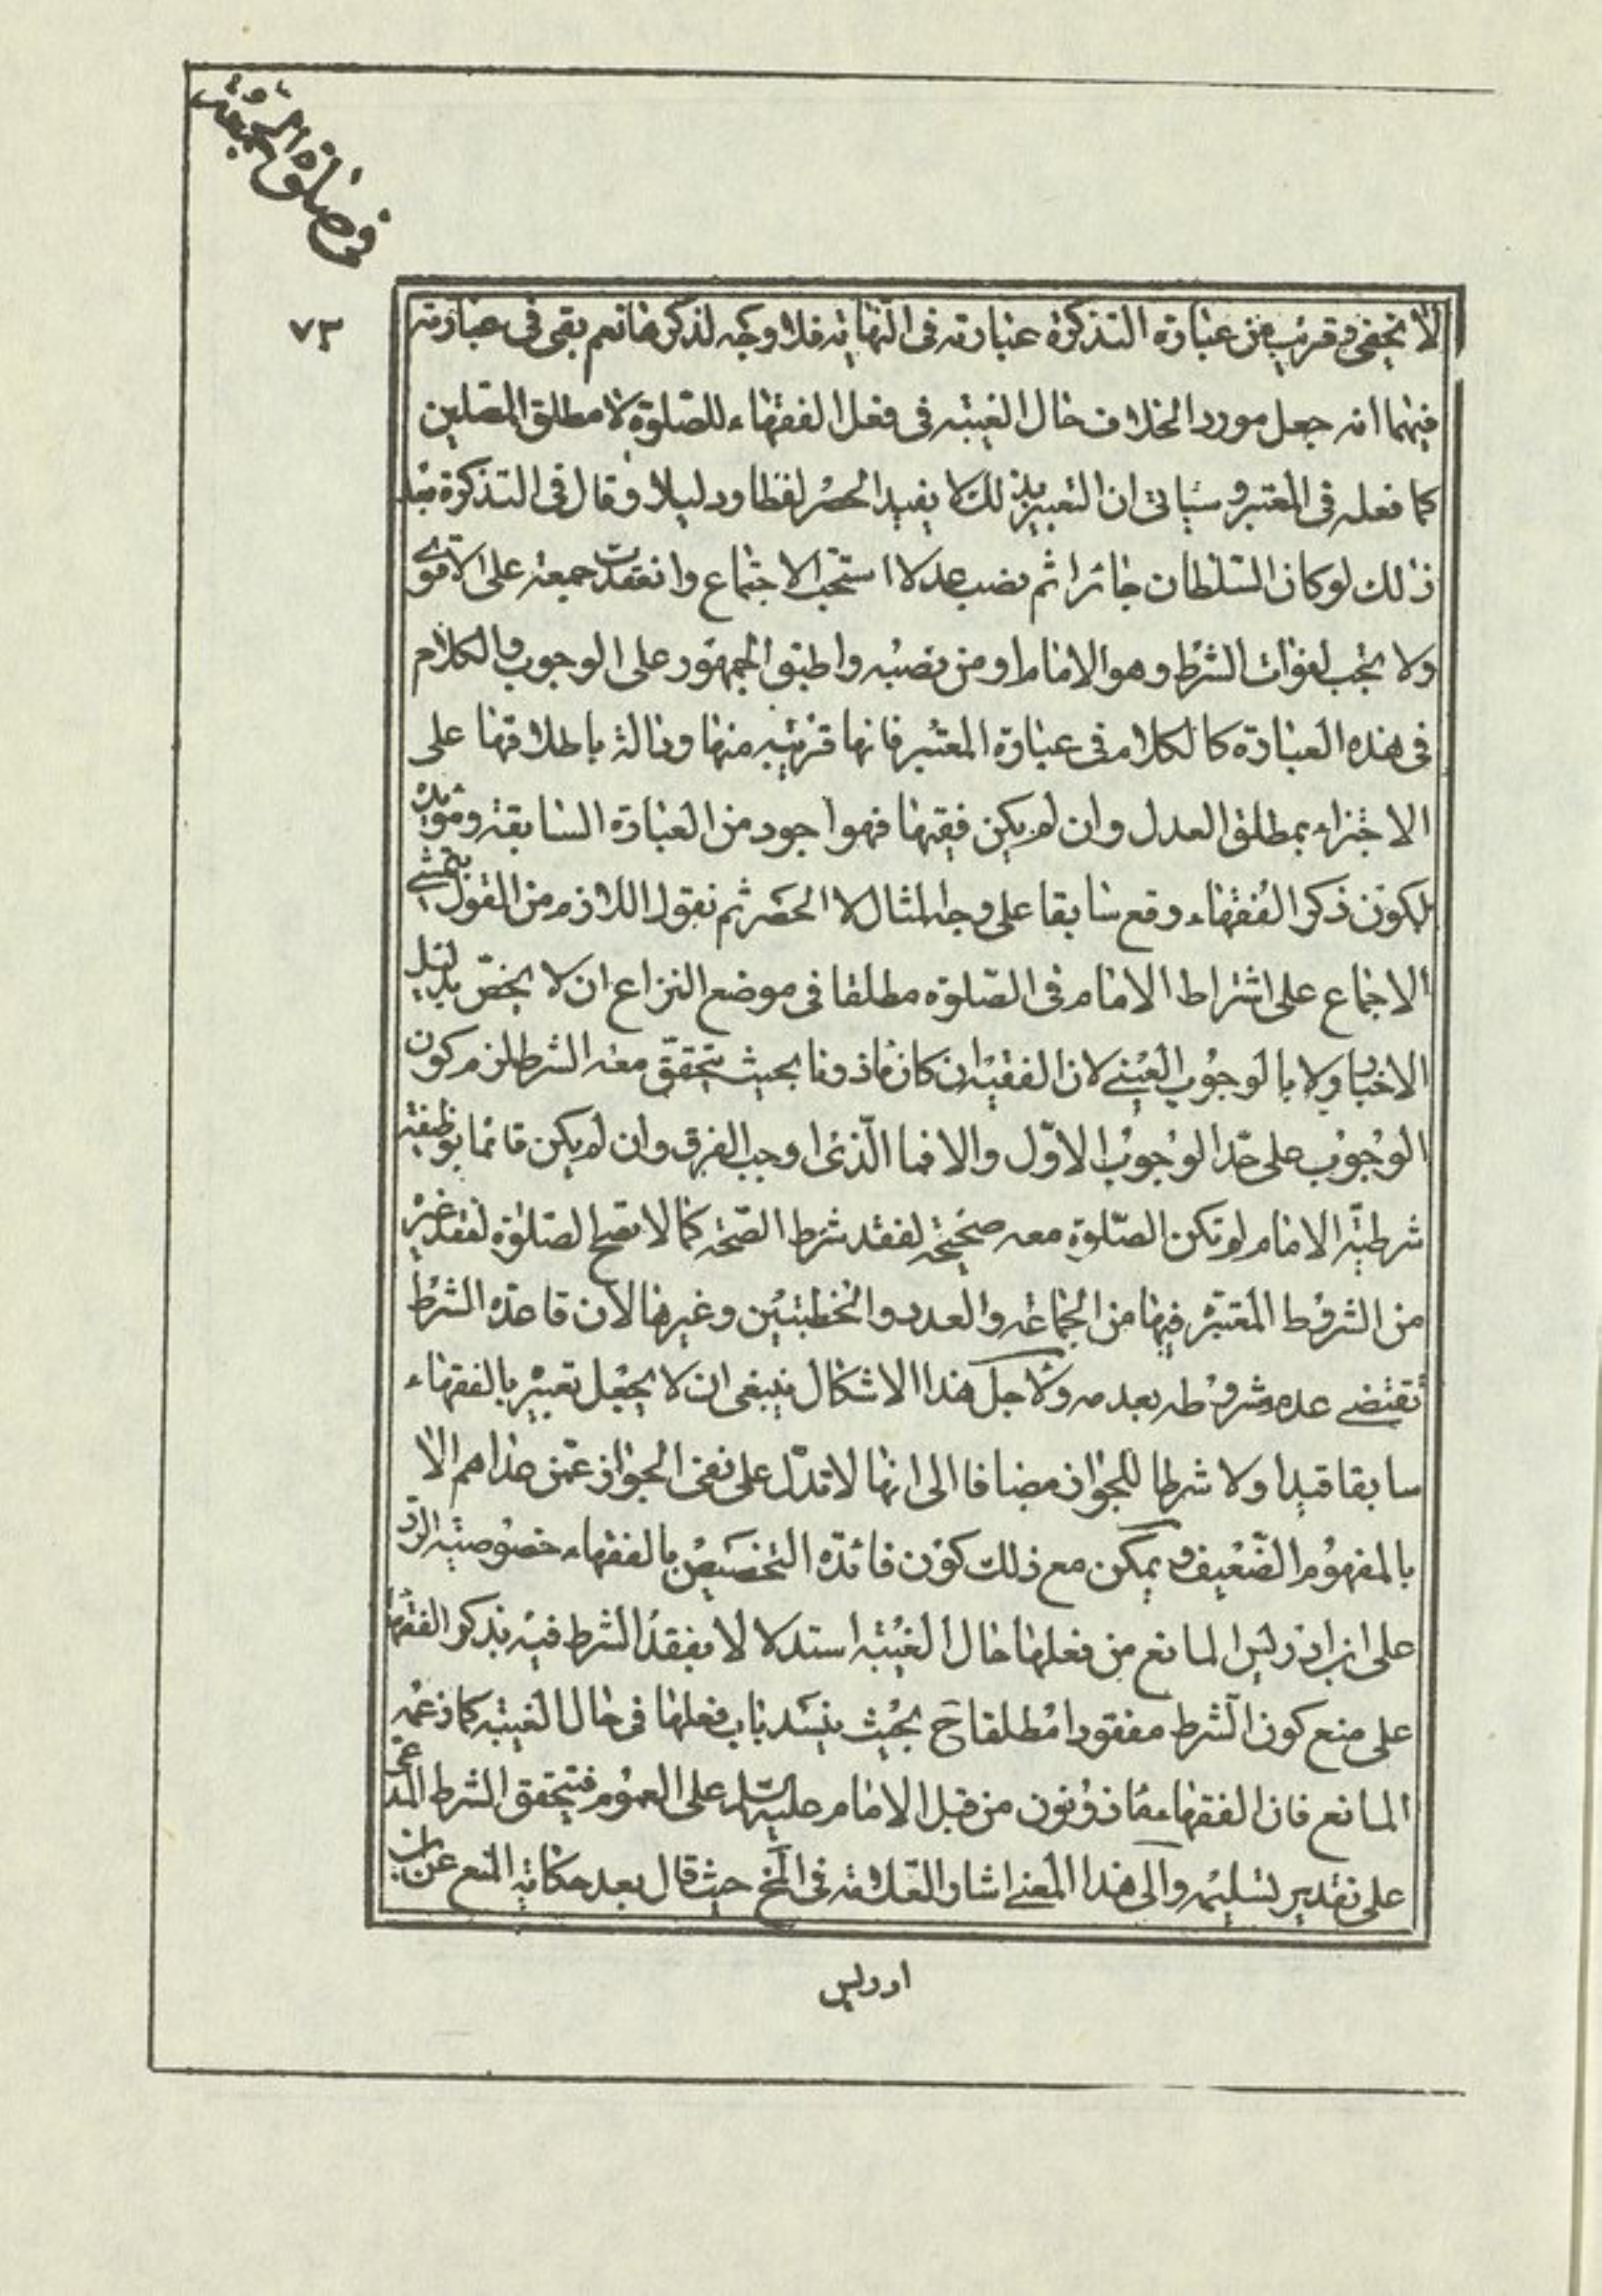 في صلوة الجمعة
٧٣
لا يخفى وقريب من عبارة التذكرة عبارته فى النهاية فلا وجه لذكرها نعم بقى فى عبارته
فيهما انه جعل مورد الخلاف حال الغيبة فى فعل الفقهاء للصّلوة لا مطلق المصلين
كما فعله فى المعتبر وسيأتى ان التعبير بذلك لا يفيد الحصر لفظا ودليلا وقال فى التذكرة بعد
ذلك لو كان السّلطان جائرا ثم نصب عدلا استحب الاجتماع وانعقدت جمعة على الاقوى
ولا يجب لفوات الشرط وهو الامام او من نصبه واطبق الجمهور على الوجوب والكلام
فى هذه العبارة كالكلام فى عبارة المعتبر فانها قريبة منها ودالة باطلاقها على
الاجتزاء بمطلق العدل وان لم يكن فقيها فهو اجود من العبارة السابقة ومؤيدة
لكون ذكر الفقهاء وقع سابقا على وجه المثال لا الحصر ثم نقول اللازم من القول بتمشى
الاجماع على اشتراط الامام فى الصّلوة مطلقا فى موضع النزاع ان لا يخصّ بدليل
الاخبار ولا بالوجوب العينى لان الفقيه ان كان ماذونا بحيث يتحقّق معه الشرط لزم كون
الوجوب على حدّ الوجوب الاوّل والا فما الّذى اوجب الفرق وان لم يكن قائما بوظيفة
شرطيّة الامام لم تكن الصّلوة معه صحيحة لفقد شرط الصّحة كما لا تصح الصّلوة لفقد غيره
من الشروط المعتبرة فيها من الجماعة والعدد والخطبتين وغيرها لان قاعدة الشرط
تقتضى عدم مشروطه بعدمه ولاجل هذا الاشكال ينبغى ان لا يجعل تعبيره بالفقهاء
سابقا قيدا ولا شرطا للجواز مضافا الى انها لا تدلّ على نفى الجواز عمّن عداهم الا
بالمفهوم الضّعيف ويمكن مع ذلك كون فائدة التخصيص بالفقهاء خصوصيّة الردّ
على ابن ادريس المانع من فعلها حال الغيبة استدلالا بفقد الشرط فنبه بذكر الفقهاء
على منع كون الشرط مفقودا مطلقا ح بحيث ينسد باب فعلها فى حال الغيبة كما زعمه
المانع فان الفقهاء ماذونون من قبل الامام عليه السلام على العموم فيتحقق الشرط المدعى
على تقدير تسليمه والى هذا المعنى اشار العلامة فى المخ حيث قال بعد حكاية المنع عن ابن
ادريس